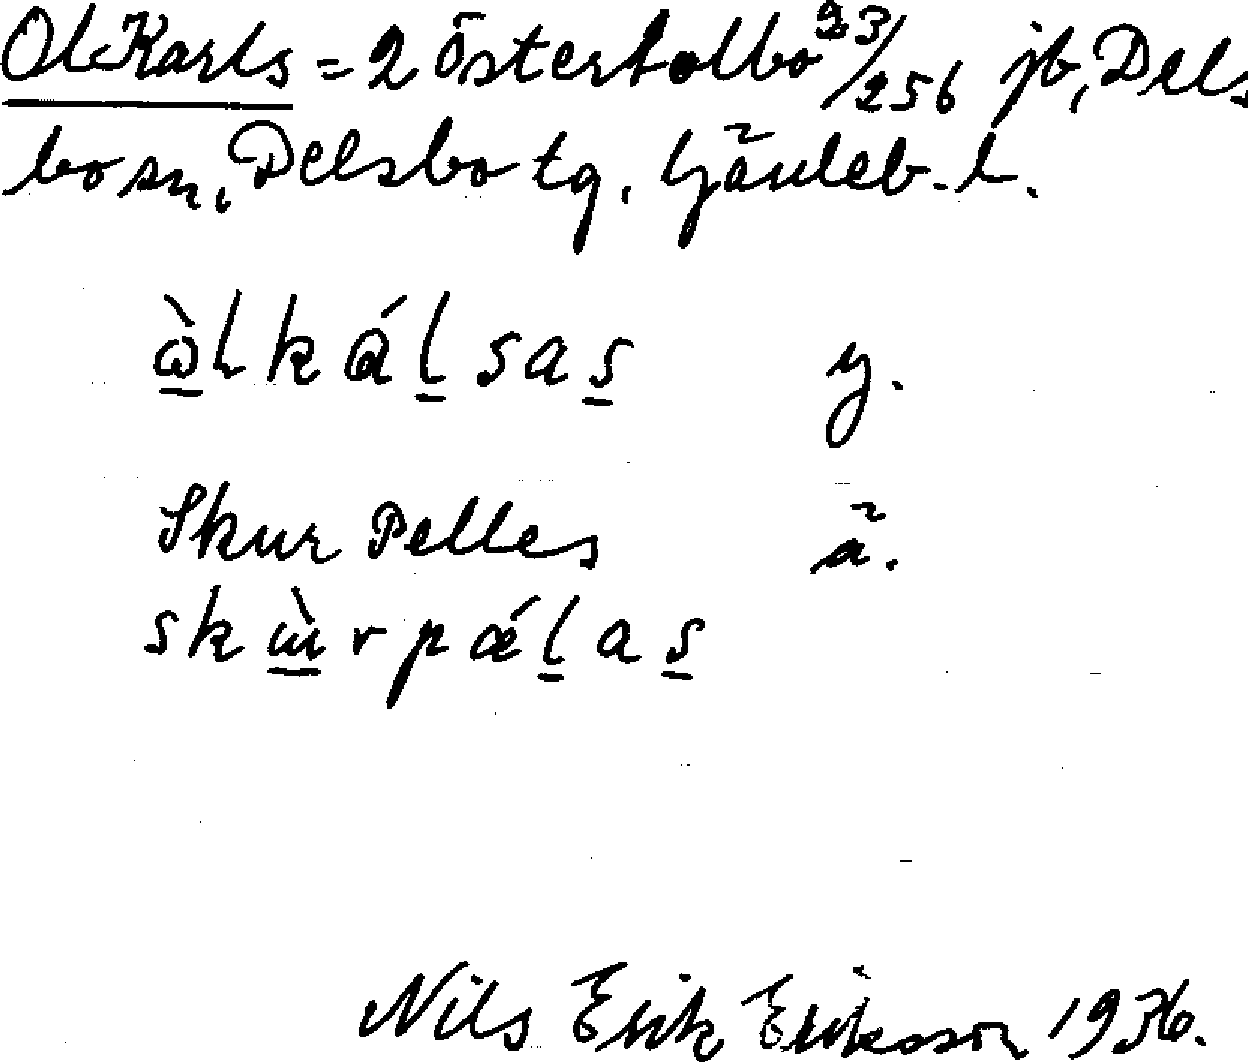 Ol-Karls = 2 Österhollbo 23/256 jb, Dels
bo sn, Delsbo tg. Gävleb. l.
ὼl k á l̲ s a s̲ y.
Skur Pelles ä.
s k ɯ̲̀ r p ǽ l̲ a s̲
Nils Erik Eriksson 1936.